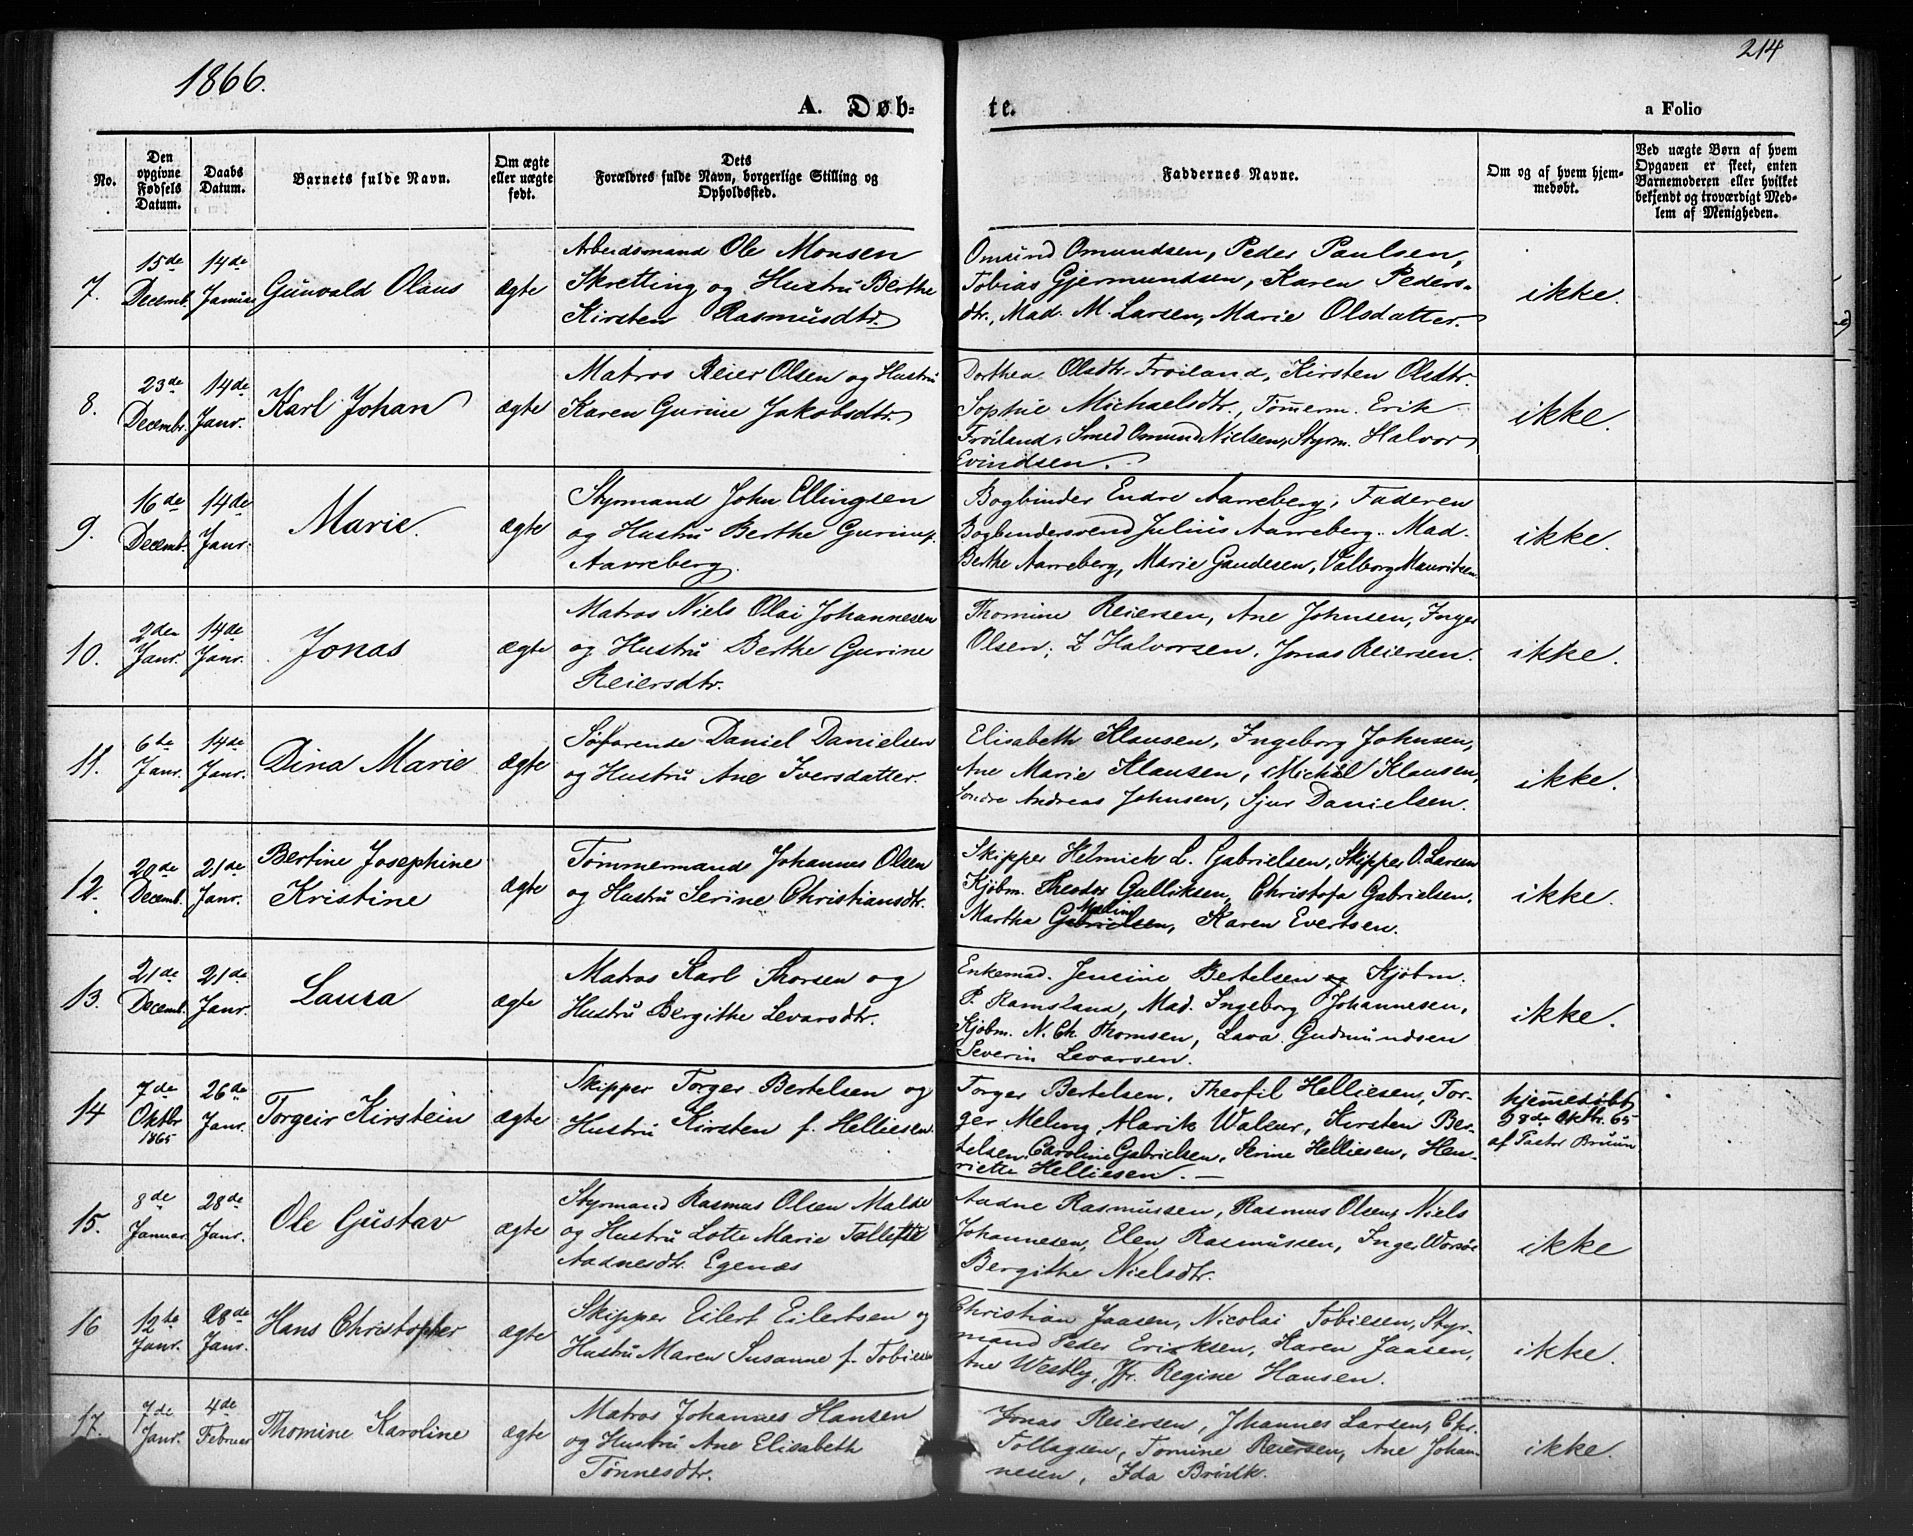 1866.
214
A. Døb-
te.
a Folio
No.
Den opgivne Fødsels Datum.
Daabs Datum.
Barnets fulde Navn.
Om ægte eller uægte født.
Dets
Forældres fulde Navn, borgerlige Stilling og
Opholdssted.
Faddernes Navne.
Om og af hvem hjem-
medøbt.
Ved uægte Børn af hvem
Opgaven er skeet, enten
Barnemoderen eller hvilket
bekjendt og troværdigt Med-
lem af Menigheden.
7.
15de Decemb.
14de Januar
Gunvald Olaus
ægte
Arbeidsmand Ole Monsen
Skretting og Hustru Berthe
Kirsten Rasmusdtr.
Omund Omundsen, Peder Paulsen,
Tobias Gjermundsen, Karen Peders-
dtr., Mad. M. Larsen, Marie Olsdatter.
ikke.
8.
23de Decembr.
14de Janr.
Karl Johan
ægte
Matros Reier Olsen og Hustru
Karen Gurine Jakobsdtr.
Dorthea Olsdtr Frøiland, Kirsten Olsdtr.
Sophie Michaelsdtr., Tømerm. Erik
Frøiland, Smed Omund Nielsen, Styrm. Halvor
Evindsen.
ikke.
9.
16de Decembr.
14de Janr.
Marie.
ægte
Styrmand John Ellingsen
og Hustru Berthe Gurine f.
Aarreberg.
Bogbinder Endre Aarreberg, Faderen
Bogbindersvend Julius Aarreberg. Mad.
Berthe Aarreberg, Marie Gaudesen, Valborg Mauritsen.
ikke.
10.
2den Janr.
14de Janr.
Jonas
ægte
Matros Niels Olai Johannesen
og Hustru Berthe Gurine
Reiersdtr.
Thomine Reiersen, Ane Johnsen, Inger
Olsen, Z Halvorsen, Jonas Reiersen.
ikke.
11.
6te Janr.
14de Janr.
Dina Marie
ægte
Søfarende Daniel Danielsen
og Hustru Ane Iversdatter.
Elisabeth Klausen, Ingeborg Johnsen,
Ane Marie Klausen, Michal Klausen,
Sondre Andreas Johnsen, Sjur Danielsen.
ikke.
12.
20de Decemb.
21de Janr.
Bertine Josephine
Kristine
ægte
Tømmermand Johannes Olsen
og Hustru Serine Christiansdtr.
Skipper Helmich L. Gabrielsen, Skipper O. Larsen
Kjøbm. Theodor Gulliksen, Christofa Gabrielsen,
Martha Gabrielsen, Karen Evertsen.
ikke.
13.
21de Decemb.
21de Janr.
Laura
ægte
Matros Karl Thorsen og
Hustru Bergithe Levarsdtr.
Enkemad. Jensine Bertelsen og Kjøbm.
P. Ramsland, Mad. Ingeborg Johannesen,
Kjøbm. N. Ch. Thomsen, Lava Gudmundsen
Severin Levarsen.
ikke.
14
7de Oktbr 1865
26de Janr.
Torgeir Kirstein
ægte
Skipper Torger Bertelsen og
Hustru Kirsten f. Helliesen.
Torger Bertelsen, Theofil Helliesen, Tor-
ger Meling, Alarik Waleur, Kirsten Ber-
telsen, Caroline Gabrielsen, Serine Helliesen, Hen-
riette Helliesen. —
hjemmedøbt
28de Oktbr. 65
af Pastor Bruun
15.
8de Januar.
28de Janr.
Ole Gustav
ægte
Styrmand Rasmus Olsen Malde
og Hustru Lotte Marie Tallette
Aadnesdtr. Egenæs
Aadne Rasmussen, Rasmus Olsen, Niels
Johannesen, Elen Rasmussen, Inger Worsøe
Bergithe Nielsdtr.
ikke
16
12te Janr.
28de Janr.
Hans Christopher
ægte
Skipper Eilert Eilertsen og
Hustru Maren Susanne f. Tobiesen
Christian Jaasen, Nicolai Tobiesen, Styr-
mand Peder Eriksen, Karen Jaasen,
Ane Westby, Jfr. Regine Hansen.
ikke.
17.
7de Janr.
4de Februar
Thomine Karoline
ægte
Matros Johannes Hansen
og Hustru Ane Elisabeth
Tønnesdtr.
Jonas Reiersen, Johannes Larsen, Chr.
Tollagsen, Tomine Reiersen, Ane Johan-
nesen, Ida Brink.
ikke.